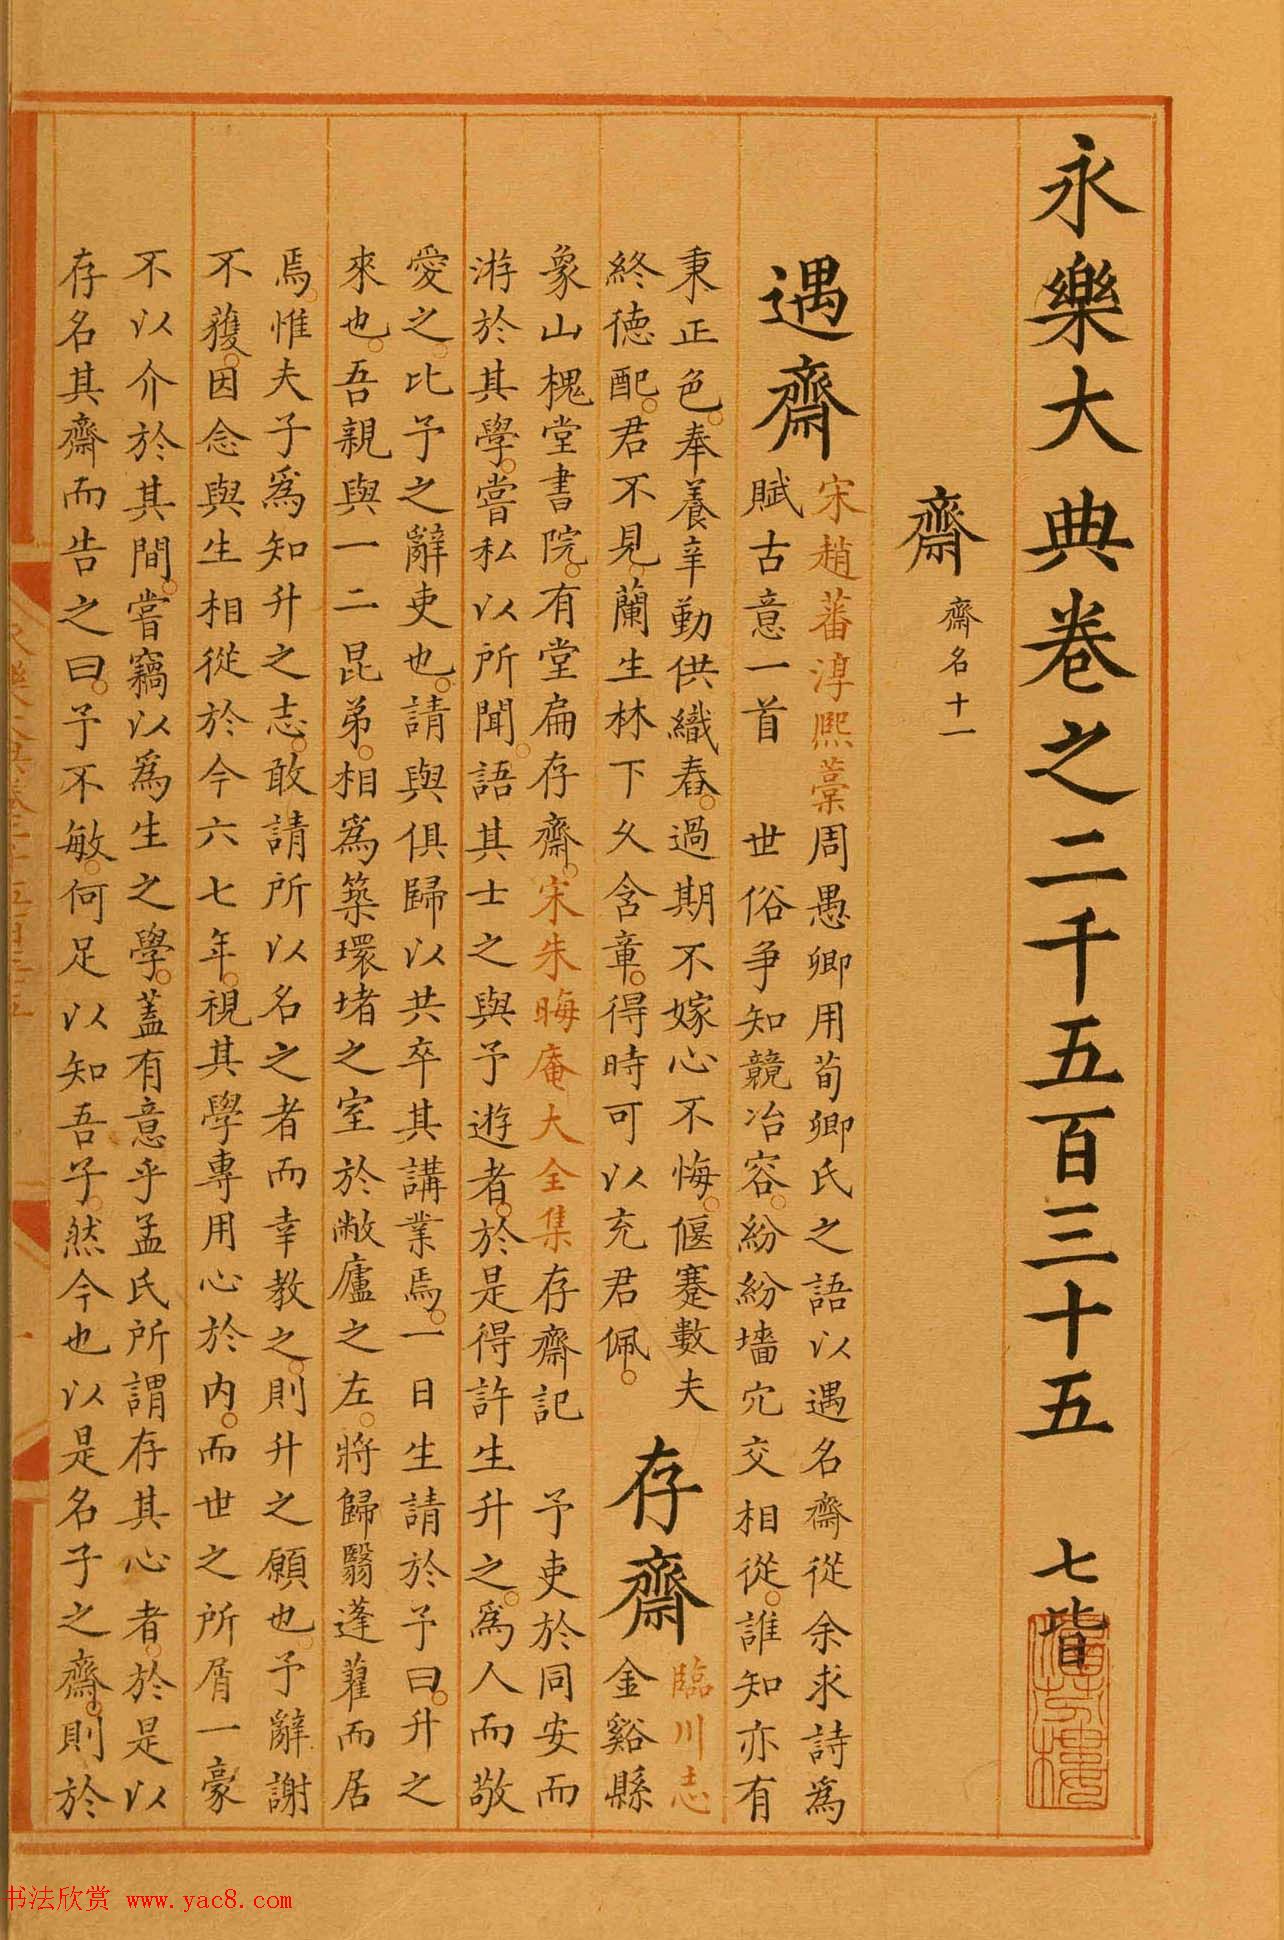 永樂大典卷之二千五百三十五 七皆
齋 齋名十一
遇齋 宋趙蕃淳熙藁周愚卿用荀卿氏之語以遇名齋從余求詩爲
賦古意一首 世俗争知競冶容紛紛墻穴交相從誰知亦有
秉正色奉養辛勤供織舂過期不嫁心不悔偃蹇數夫
終德配君不見蘭生林下久含章得時可以充君佩 存齋 臨川志
金谿縣
象山槐堂書院有堂扁存齋宋朱晦庵大全集存齋記 予吏於同安而
游於其學嘗私以所聞語其士之與予遊者於是得許生升之爲人而敬
愛之比予之辭吏也請與俱歸以共卒其講業焉一日生請於予曰升之
來也吾親與一二昆弟相爲築環堵之室於敝廬之左將歸翳蓬藋而居
焉惟夫子爲知升之志敢請所以名之者而幸教之則升之願也予辭謝
不獲因念與生相從於今六七年視其學專用心於内而世之所屑一豪
不以介於其間嘗竊以爲生之學蓋有意乎孟氏所謂存其心者於是以
存名其齋而告之曰予不敏何足以知吾子然今也以是名子之齋則於
书法欣赏 www.yac8.com